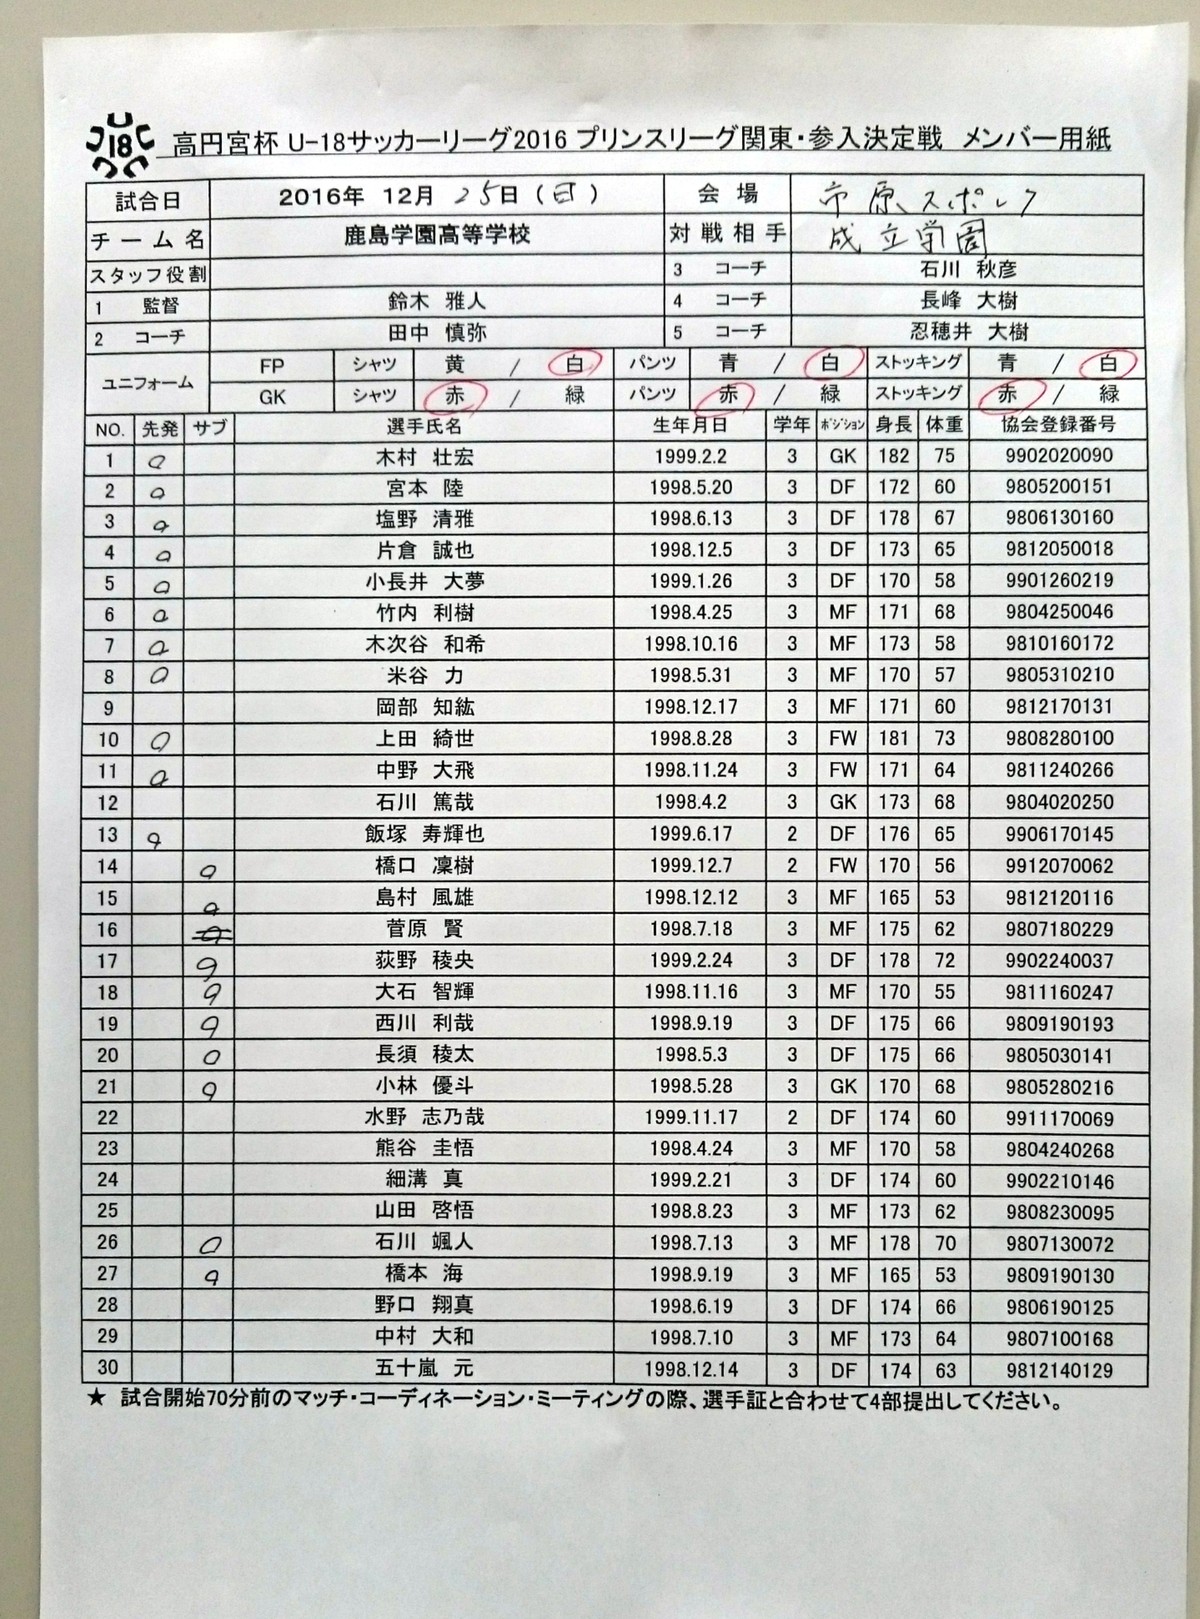 18 高円宮杯 U-18サッカーリーグ2016 プリンスリーグ関東・参入決定戦 メンバー用紙
試合日 2016年 12月 25日 (日) 会場 市原スポレク
チーム名 鹿島学園高等学校 対戦相手 成立学園
スタッフ役割 3 コーチ 石川 秋彦
1 監督 鈴木 雅人 4 コーチ 長峰 大樹
2 コーチ 田中 慎弥 5 コーチ 忍穂井 大樹
ユニフォーム FP シャツ 黄 / 白 パンツ 青 / 白 ストッキング 青 / 白
GK シャツ 赤 / 緑 パンツ 赤 / 緑 ストッキング 赤 / 緑
NO. 先発 サブ 選手氏名 生年月日 学年 ポジション 身長 体重 協会登録番号
1 ○ 木村 壮宏 1999.2.2 3 GK 182 75 9902020090
2 ○ 宮本 陸 1998.5.20 3 DF 172 60 9805200151
3 ○ 塩野 清雅 1998.6.13 3 DF 178 67 9806130160
4 ○ 片倉 誠也 1998.12.5 3 DF 173 65 9812050018
5 ○ 小長井 大夢 1999.1.26 3 DF 170 58 9901260219
6 ○ 竹内 利樹 1998.4.25 3 MF 171 68 9804250046
7 ○ 木次谷 和希 1998.10.16 3 MF 173 58 9810160172
8 ○ 米谷 力 1998.5.31 3 MF 170 57 9805310210
9 岡部 知紘 1998.12.17 3 MF 171 60 9812170131
10 ○ 上田 綺世 1998.8.28 3 FW 181 73 9808280100
11 ○ 中野 大飛 1998.11.24 3 FW 171 64 9811240266
12 石川 篤哉 1998.4.2 3 GK 173 68 9804020250
13 ○ 飯塚 寿輝也 1999.6.17 2 DF 176 65 9906170145
14 ○ 橋口 凜樹 1999.12.7 2 FW 170 56 9912070062
15 ○ 島村 風雄 1998.12.12 3 MF 165 53 9812120116
16 ○ 菅原 賢 1998.7.18 3 MF 175 62 9807180229
17 ○ 荻野 稜央 1999.2.24 3 DF 178 72 9902240037
18 ○ 大石 智輝 1998.11.16 3 MF 170 55 9811160247
19 ○ 西川 利哉 1998.9.19 3 DF 175 66 9809190193
20 ○ 長須 稜太 1998.5.3 3 DF 175 66 9805030141
21 ○ 小林 優斗 1998.5.28 3 GK 170 68 9805280216
22 水野 志乃哉 1999.11.17 2 DF 174 60 9911170069
23 熊谷 圭悟 1998.4.24 3 MF 170 58 9804240268
24 細溝 真 1999.2.21 3 DF 174 60 9902210146
25 山田 啓悟 1998.8.23 3 MF 173 62 9808230095
26 ○ 石川 颯人 1998.7.13 3 MF 178 70 9807130072
27 ○ 橋本 海 1998.9.19 3 MF 165 53 9809190130
28 野口 翔真 1998.6.19 3 DF 174 66 9806190125
29 中村 大和 1998.7.10 3 MF 173 64 9807100168
30 五十嵐 元 1998.12.14 3 DF 174 63 9812140129
★ 試合開始70分前のマッチ・コーディネーション・ミーティングの際、選手証と合わせて4部提出してください。